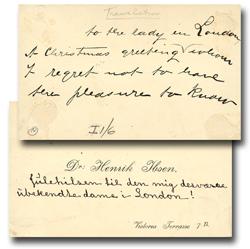 Translation
to the lady in London
A Christmas greeting
I regret not to have
the pleasure to know
I 1/6
Dr. Henrik Ibsen.
Julehilsen til den mig desværre
ubekendte dame i London!
Victoria Terrasse 7 B.